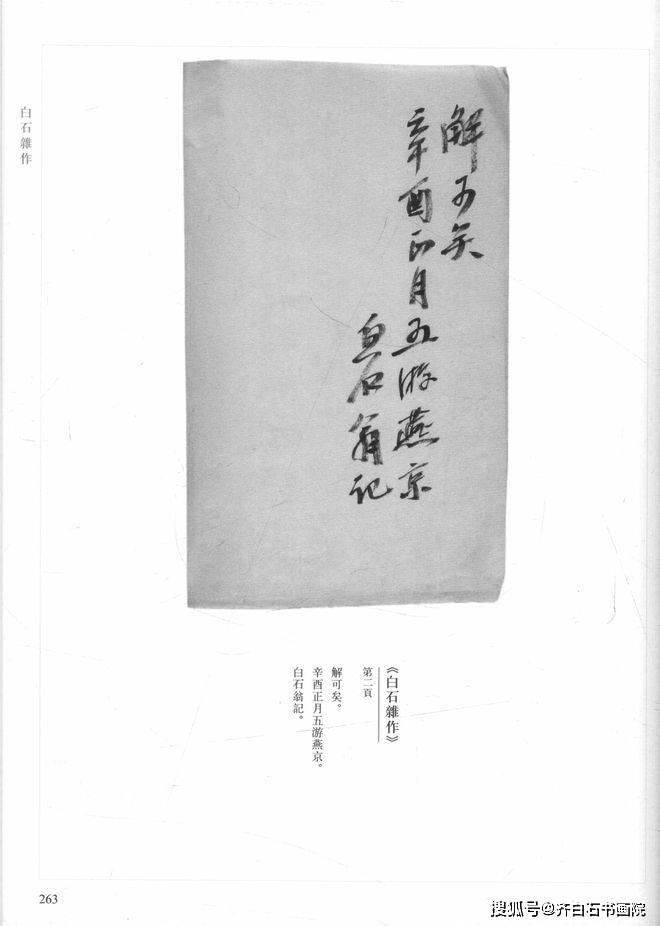 白石雜作
解可矣
辛酉正月五游燕京
白石翁記
《白石雜作》
第二頁
解可矣。
辛酉正月五游燕京。
白石翁記。
263
搜狐号@齐白石书画院